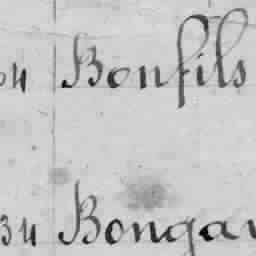 34 Bonfils
34 Bongar